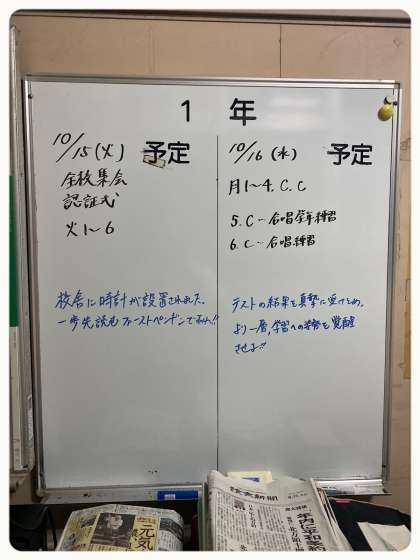 1年
10/15(火) 予定
全校集会
認証式
火1～6
校舎に時計が設置された。
一歩先読むファーストペンギンであれ!!
10/16(水) 予定
月1～4.C.C
5.C-合唱学年練習
6.C-合唱練習
テストの結果を真摯に受けとめ、
より一層、学習への姿勢を覚醒
させよ!!
読売新聞
元気
年内に平和条